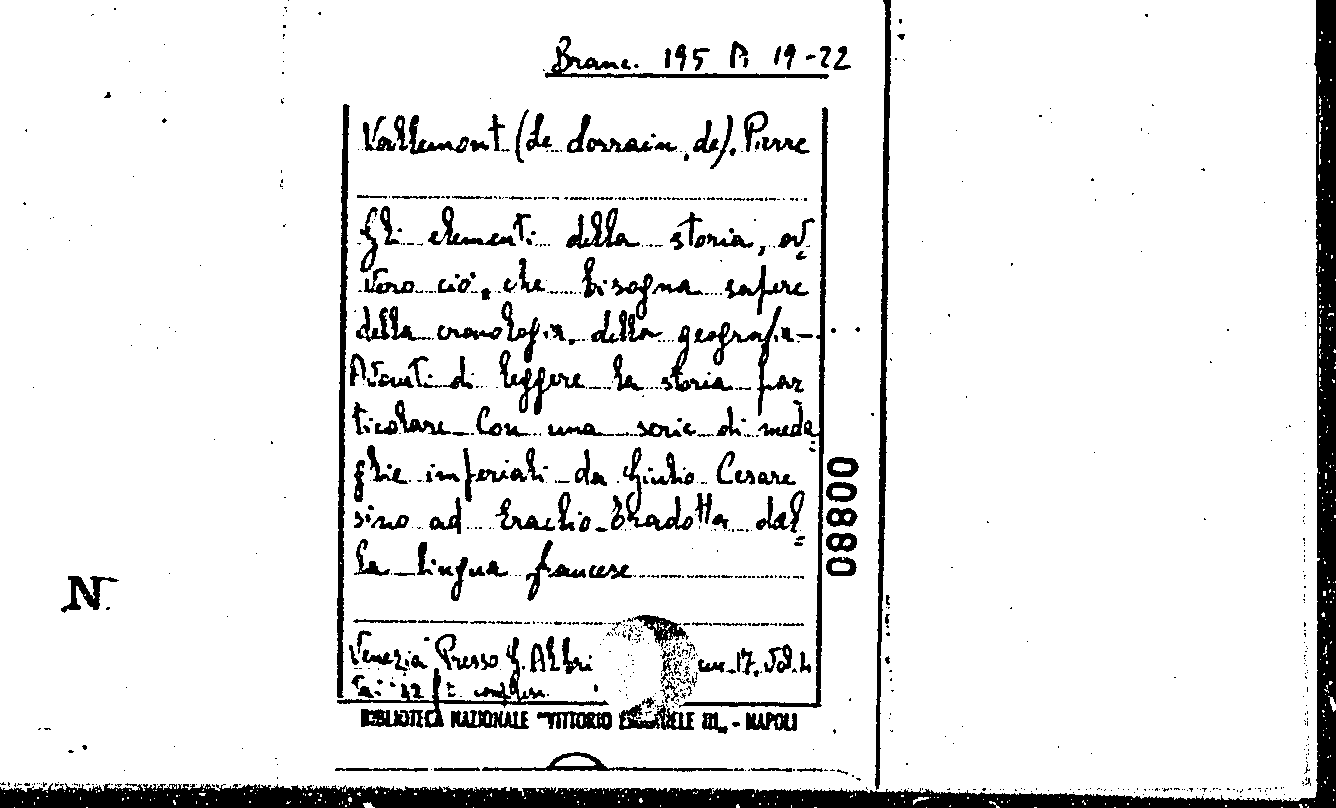 Branc. 195 A 19-22
Vallemont (Le Lorrain, de). Pierre
Gli elementi della storia, ov
vero ciò, che bisogna sapere
della cronologia, della geografia -
Avanti di leggere la storia par
ticolare - Con una serie di meda
glie imperiali da Giulio Cesare
sino ad Eraclio - Tradotta dal
la lingua francese
08800
N
Venezia Presso G. Albri 17. Vol. 4
BIBLIOTECA NAZIONALE "VITTORIO EMANUELE III" - NAPOLI